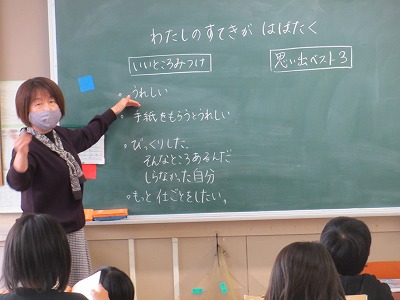 わたしのすてきが はばたく
いいところみつけ
思い出ベスト3
・うれしい
・手紙をもらうとうれしい
・びっくりした。
そんなところあるんだ
しらなかった自分
・もっと仕ごとをしたい。